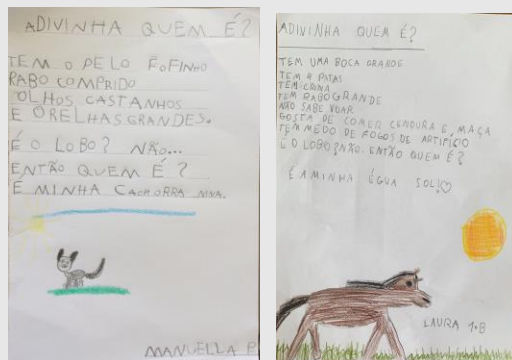 ADIVINHA QUEM É?
TEM O PELO FOFINHO
RABO COMPRIDO
OLHOS CASTANHOS
E ORELHAS GRANDES.
É O LOBO? NÃO...
ENTÃO QUEM É?
É MINHA CACHORRA NINA.
MANUELLA P
ADIVINHA QUEM É?
TEM UMA BOCA GRANDE
TEM 4 PATAS
TEM CRINA
TEM RABO GRANDE
NÃO SABE VOAR
GOSTA DE COMER CENOURA E MAÇA
TEM MEDO DE FOGOS DE ARTIFÍCIO
É O LOBO? NÃO. ENTÃO QUEM É?
É A MINHA ÉGUA SOL!♡
LAURA 1ºB